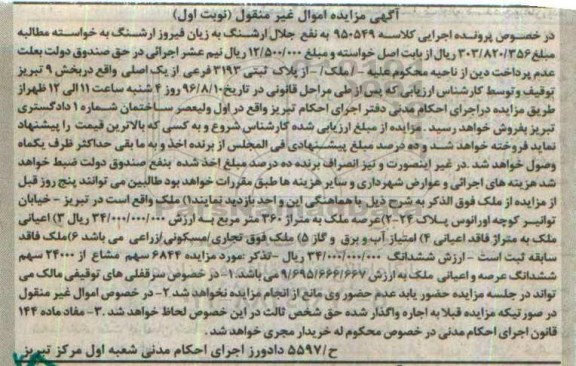 آگهی مزایده اموال غیر منقول (نوبت اول)
در خصوص پرونده اجرایی کلاسه ۹۵۰۵۴۹ به نفع جلال ارشنگ به زیان فیروز ارشنگ به خواسته مطالبه
مبلغ ۳۰۳/۸۲۰/۳۵۶ ریال از بابت اصل خواسته و مبلغ ۱۲/۵۰۰/۰۰۰ ریال نیم عشر اجرائی در حق صندوق دولت بعلت
عدم پرداخت دین از ناحیه محکوم علیه - /ملک/- از پلاک ثبتی ۳۱۹۳ فرعی از یک اصلی واقع دربخش ۹ تبریز
توقیف و توسط کارشناس ارزیابی که پس از طی مراحل قانونی در تاریخ ۹۶/۸/۱۰ روز ۴ شنبه ساعت ۱۱ الی ۱۲ ظهر از
طریق مزایده در اجرای احکام مدنی دفتر اجرای احکام تبریز واقع در اول ولیعصر ساختمان شماره ۱ دادگستری
تبریز بفروش خواهد رسید . مزایده از مبلغ ارزیابی شده کارشناس شروع و به کسی که بالاترین قیمت را پیشنهاد
نماید فروخته خواهد شد و ده درصد مبلغ پیشنهادی فی المجلس از برنده اخذ و به ما بقی حداکثر ظرف یکماه
وصول خواهد شد .در غیر اینصورت و نیز انصراف برنده ده درصد مبلغ اخذ شده بنفع صندوق دولت ضبط خواهد
شد هزینه های اجرائی و عوارض شهرداری و سایر هزینه ها طبق مقررات خواهد بود طالبین می توانند پنج روز قبل
از مزایده از ملک فوق الذکر به شرح ذیل با هماهنگی این واحد بازدید نمایند۱) ملک واقع است در تبریز - خیابان
توانیر کوچه اورانوس پلاک ۲۴-۲) عرصه ملک به متراژ ۳۶۰ متر مربع به ارزش ۳۴/۰۰۰/۰۰۰/۰۰۰ ریال ۳) اعیانی
ملک به متراژ فاقد اعیانی ۴) امتیاز آب و برق و گاز ۵) ملک فوق تجاری/مسکونی/زراعی می باشد ۶)ملک فاقد
سابقه ثبت است - ارزش ششدانگ ۳۴/۰۰۰/۰۰۰/۰۰۰ ریال -تذکر :مورد مزایده ۶۸۴۴ سهم مشاع از ۲۴۰۰۰ سهم
ششدانگ عرصه و اعیانی ملک به ارزش ۹/۶۹۵/۶۶۶/۶۶۷ می باشد.۱- در خصوص سرقفلی های توقیفی مالک می
تواند در جلسه مزایده حضور یابد عدم حضور وی مانع از انجام مزایده نخواهد شد ۲- در خصوص اموال غیر منقول
در صورتیکه مزایده قبلا به اجاره واگذار شده حق شخص ثالث در این خصوص لحاظ خواهد شد .۳- مفاد ماده ۱۴۴
قانون اجرای احکام مدنی در خصوص محکوم له خریدار مجری خواهد شد.
ح/۵۵۹۷ دادورز اجرای احکام مدنی شعبه اول مرکز تبریز